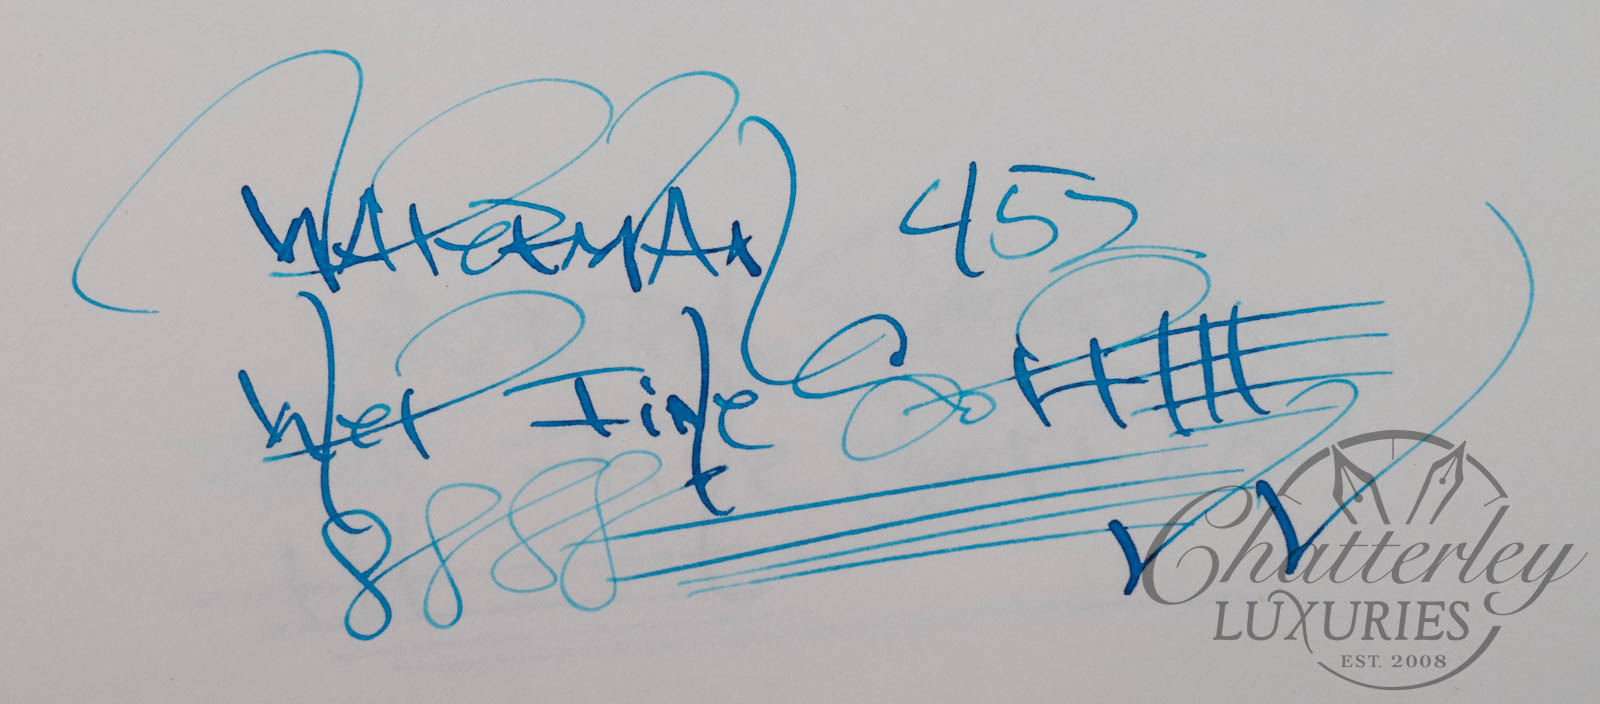 WATERMAN 452
Wet Fine Soft
Chatterley
LUXURIES
EST. 2008